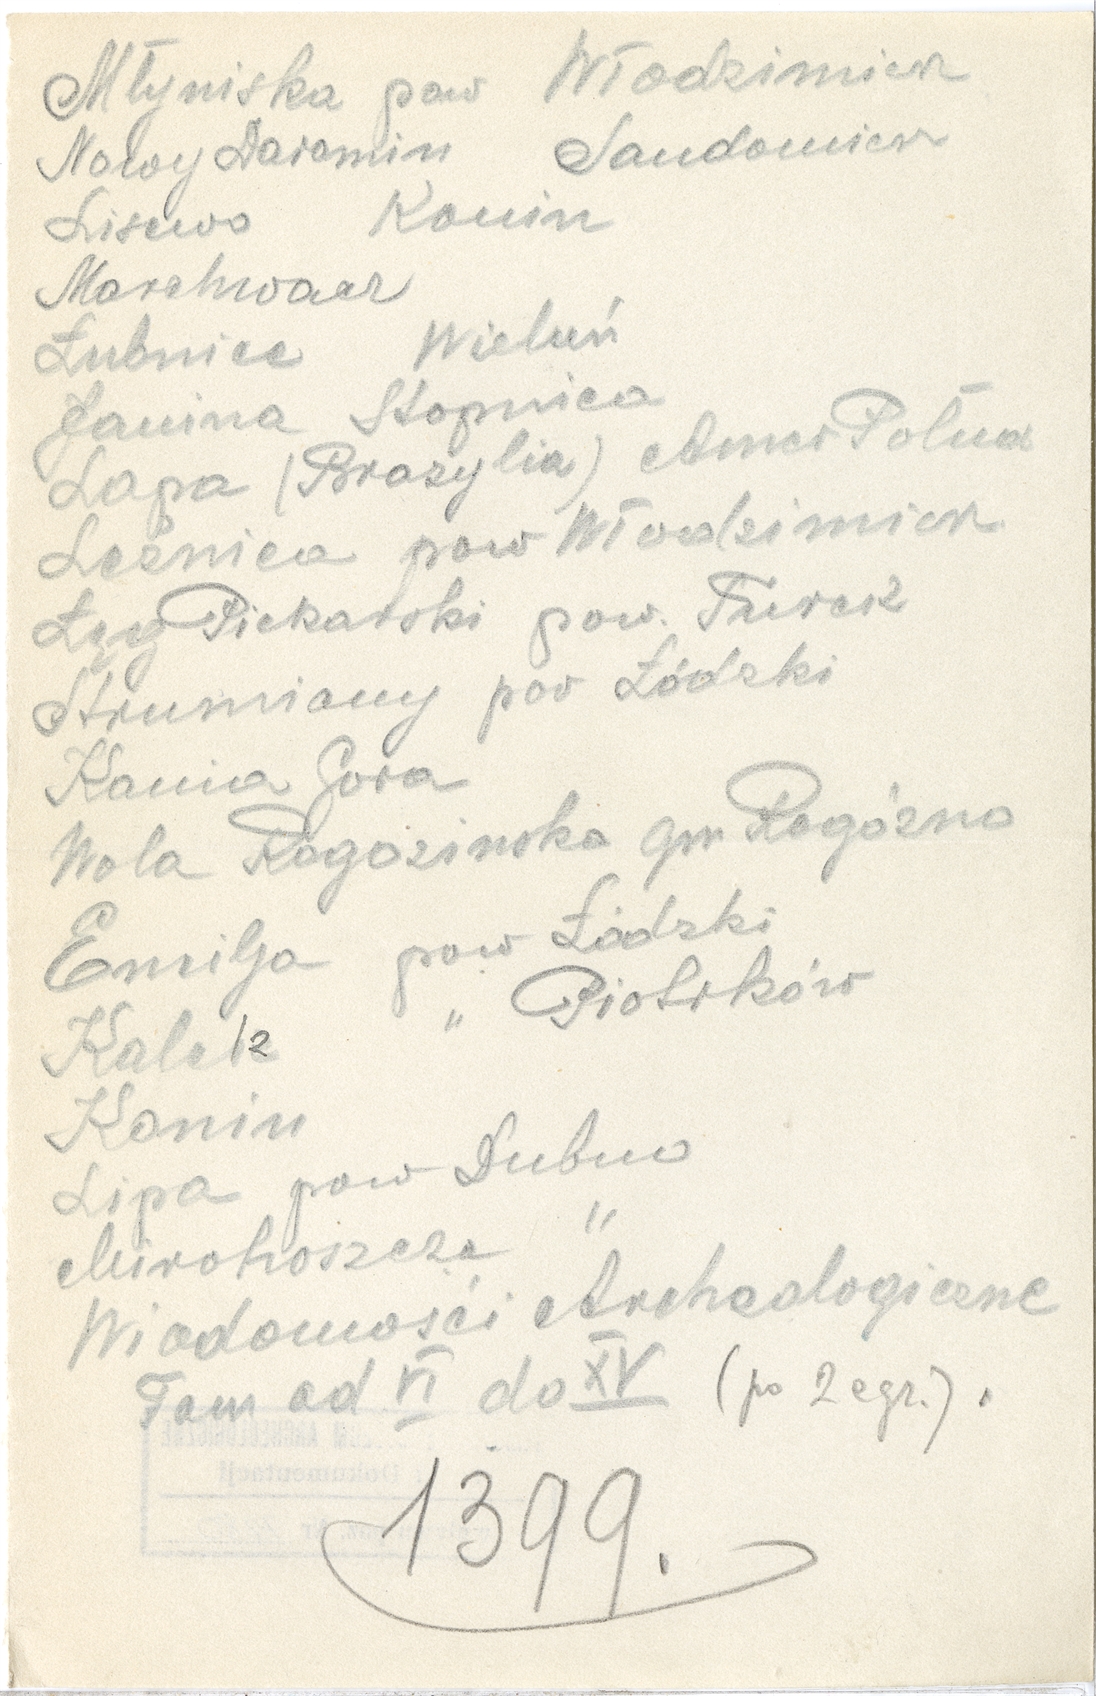 Młyniska pow Włodzimierz
Nowy Daromin Sandomierz
Lisewo Konin
Marchwacz
Łubnice Wieluń
Janina Stopnica
Lapa (Brazylia) Amer Połud
Leżnica pow Włodzimierz
Łęg Piekarski pow. Turek
Strumiany pow Łódzki
Kania Gora
Wola Rogozinska gm Rogózno
Emilja pow Łódzki
Kalek " Piotrków
Konin
Lipa pow Dubno
Mirohoszcze "
Wiadomości Archeologiczne
Tom od VI do XV (po 2 egz.).
1399.